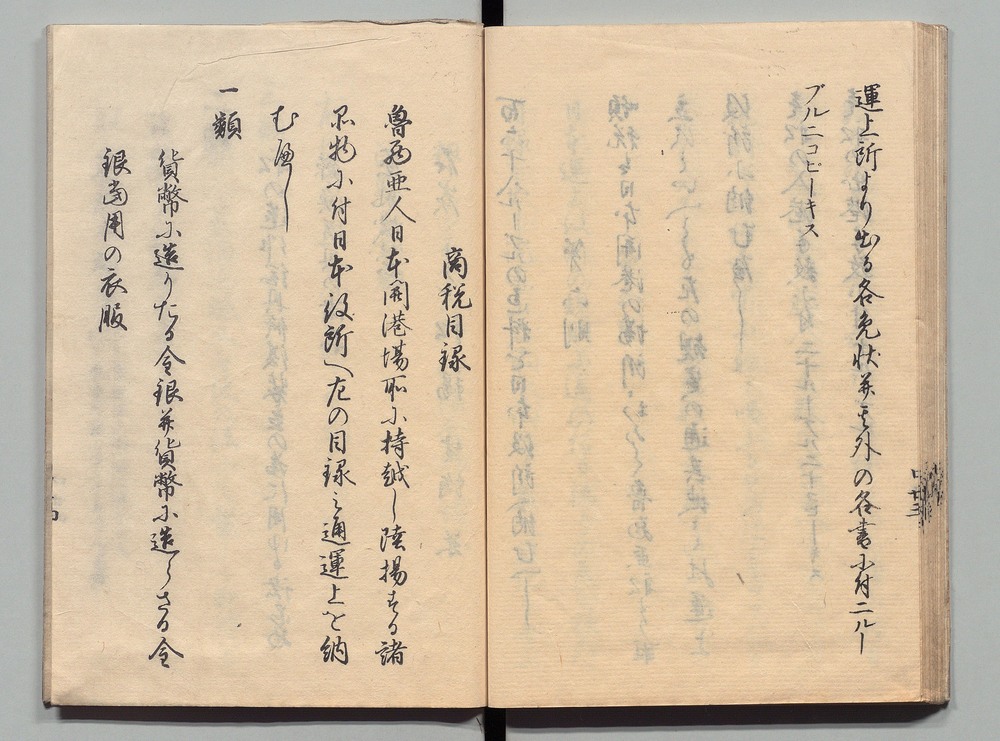 運上所より出る各免状并其外の各書に付二ルー
ブルニコピーキス
商税目録
魯西亜人日本開港場所に持越し陸揚する諸
品物に付日本役所へ左の目録之通運上を納
むへし
一類
貨幣に造りたる金銀并貨幣に造らさる金
銀当用の衣服